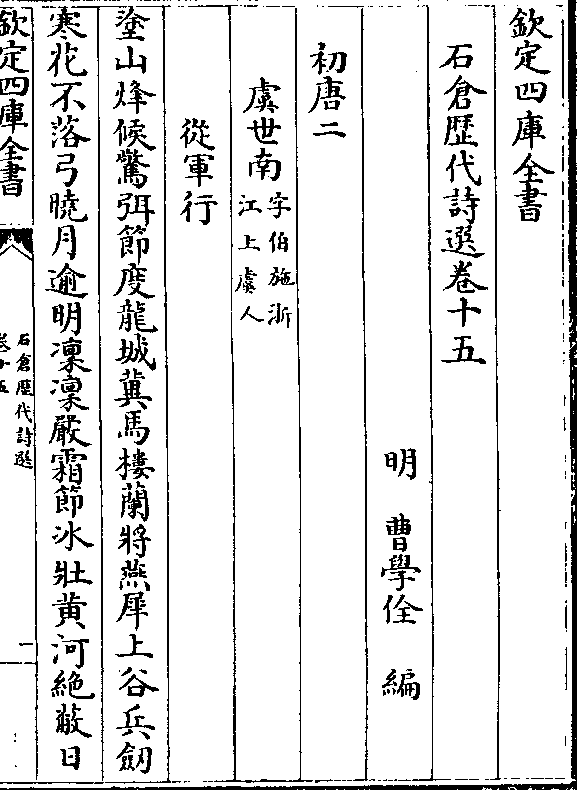 欽定四庫全書
石倉歴代詩選卷十五
明　曹學佺　編
初唐二
虞世南 字伯施浙
江上虞人
從軍行
塗山烽候驚弭節度龍城冀馬樓蘭將燕犀上谷兵劒
寒花不落弓曉月逾明凛凛嚴霜節冰壯黄河絶蔽日
欽定四庫全書
石倉歴代詩選
卷十五
一